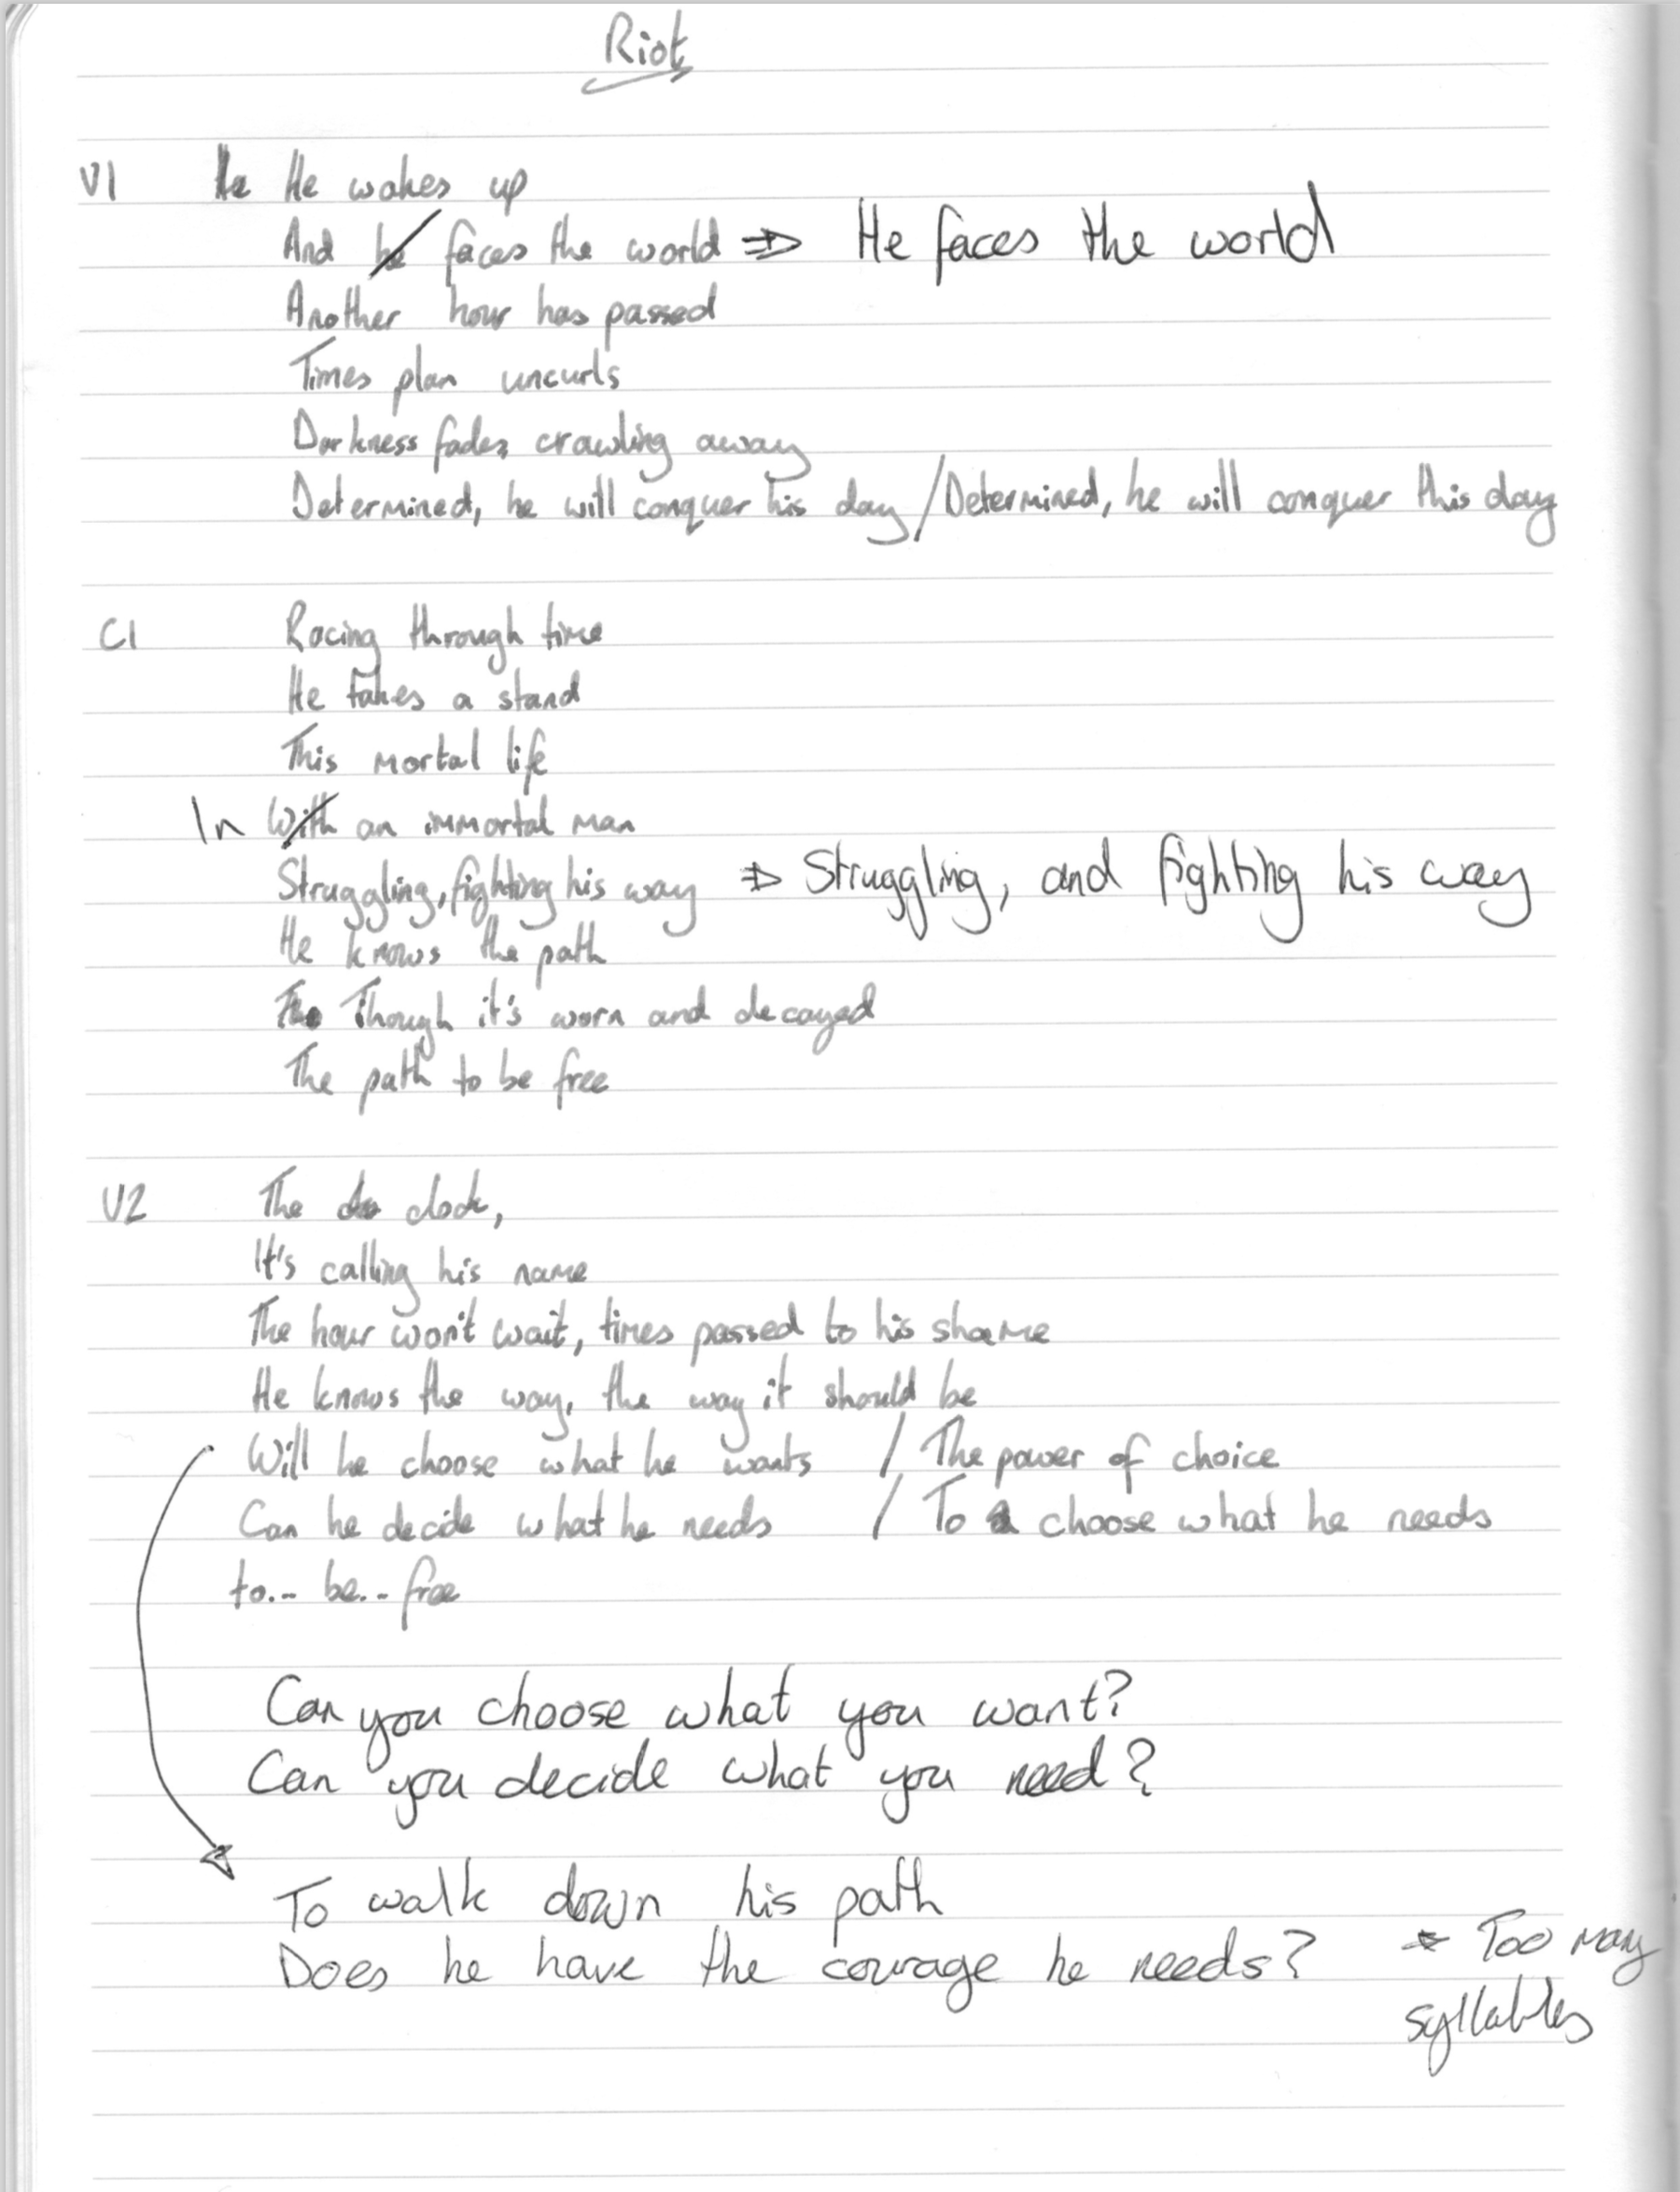 Riot
V1 He He wakes up
And he faces the world ⇒ He faces the world
Another hour has passed
Times plan uncurls
Darkness fades crawling away
Determined, he will conquer his day / Determined, he will conquer this day
C1 Racing through time
He takes a stand
This mortal life
In With an immortal man
Struggling, fighting his way ⇒ Struggling, and fighting his way
He knows the path
Though it's worn and decayed
The path to be free
V2 The clock,
It's calling his name
The hour won't wait, times passed to his shame
He knows the way, the way it should be
Will he choose what he wants / The power of choice
Can he decide what he needs / To choose what he needs
to... be... free
Can you choose what you want?
Can you decide what you need?
To walk down his path
Does he have the courage he needs? * Too many
syllables